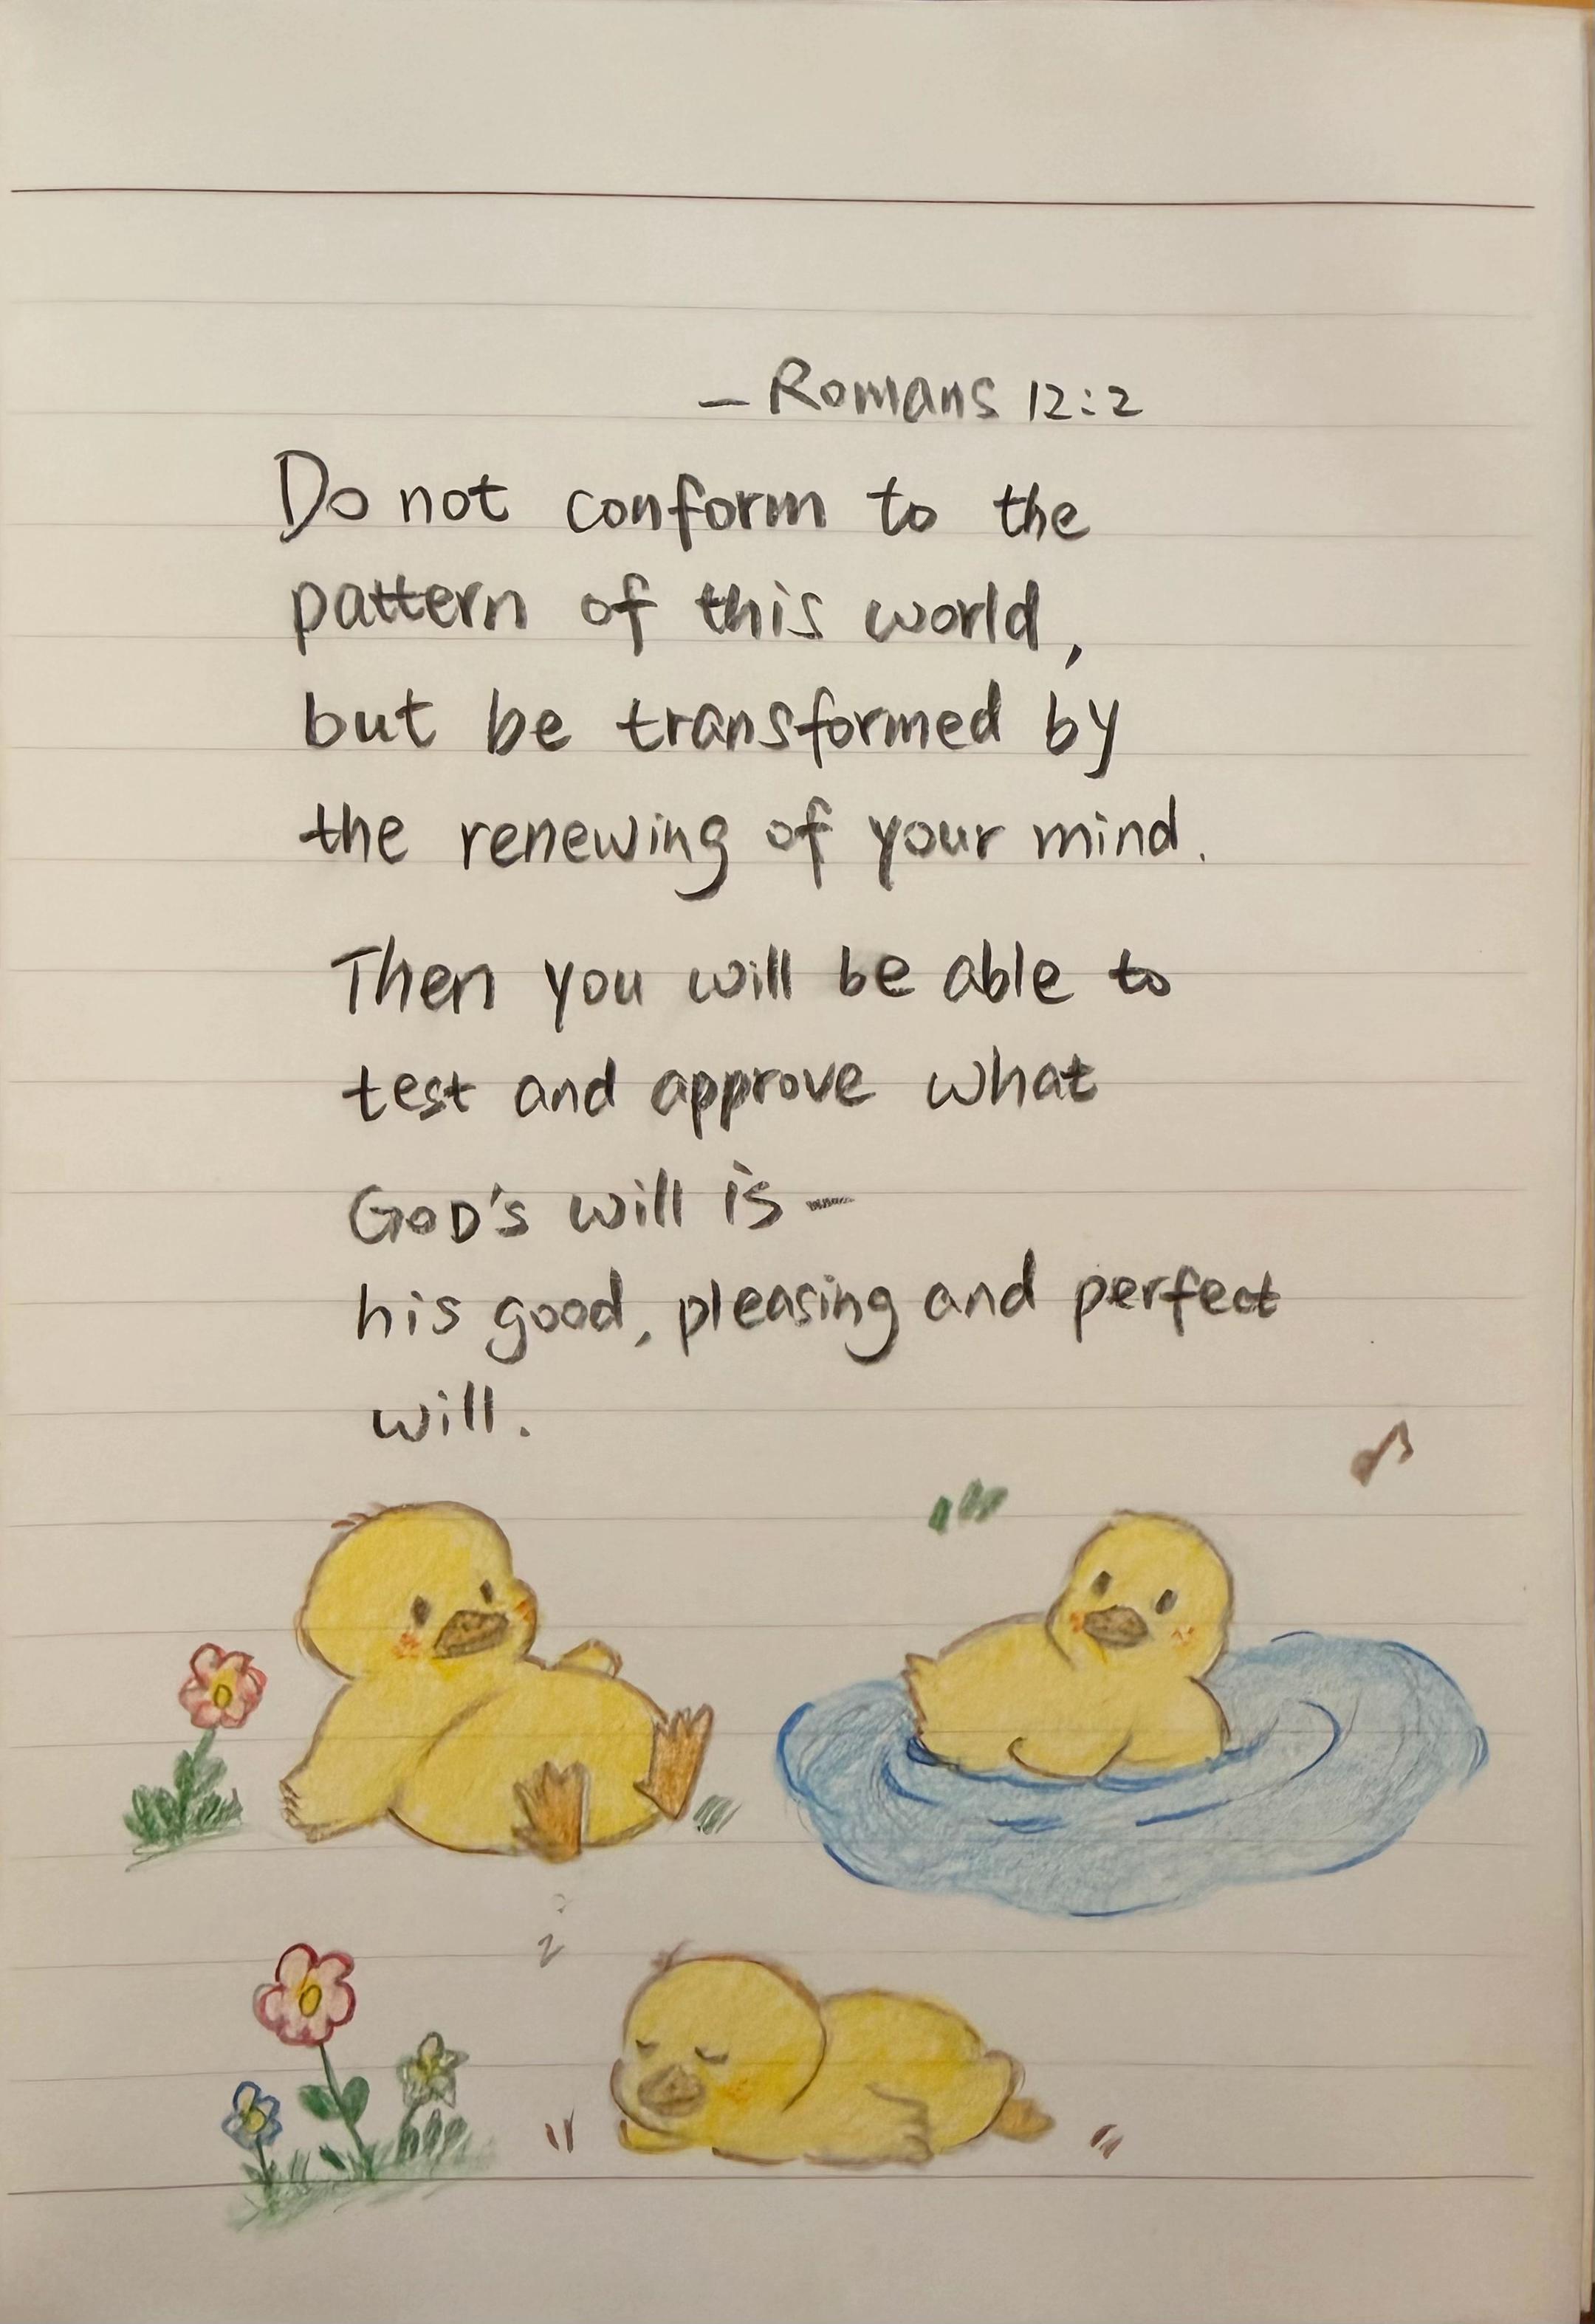 — Romans 12:2
Do not conform to the
pattern of this world,
but be transformed by
the renewing of your mind.
Then you will be able to
test and approve what
GOD's will is -
his good, pleasing and perfect
will.
z